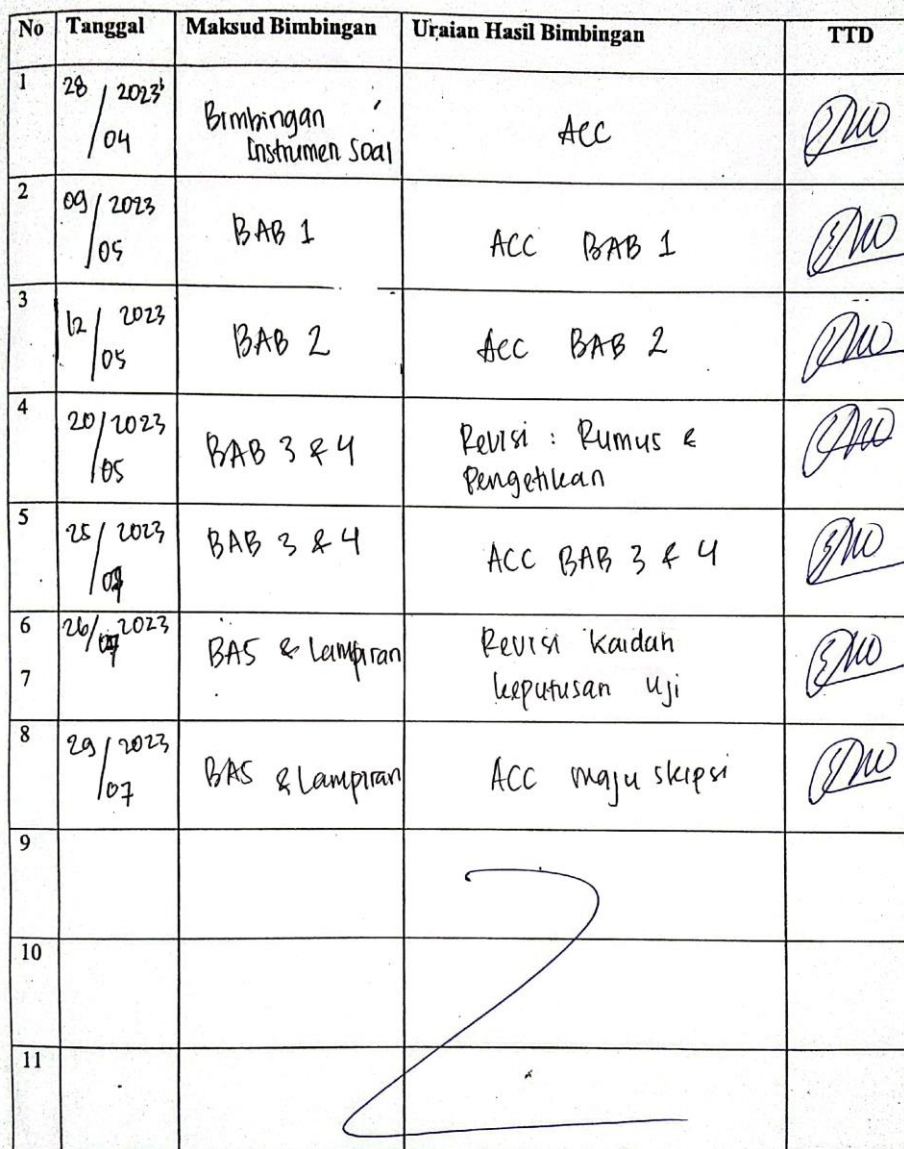 No Tanggal Maksud Bimbingan Uraian Hasil Bimbingan TTD
1 28/04 2023 Bimbingan Instrumen Soal Acc
2 09/05 2023 BAB 1 ACC BAB 1
3 12/05 2023 BAB 2 Acc BAB 2
4 20/05 2023 BAB 3 & 4 Revisi : Rumus & Pengetikan
5 25/ 2023 BAB 3 & 4 ACC BAB 3 & 4
6 26/ 2023 BA5 & Lampiran Revisi kaidah keputusan Uji
7
8 29/07 2023 BA5 & Lampiran ACC maju skipsi
9
10
11